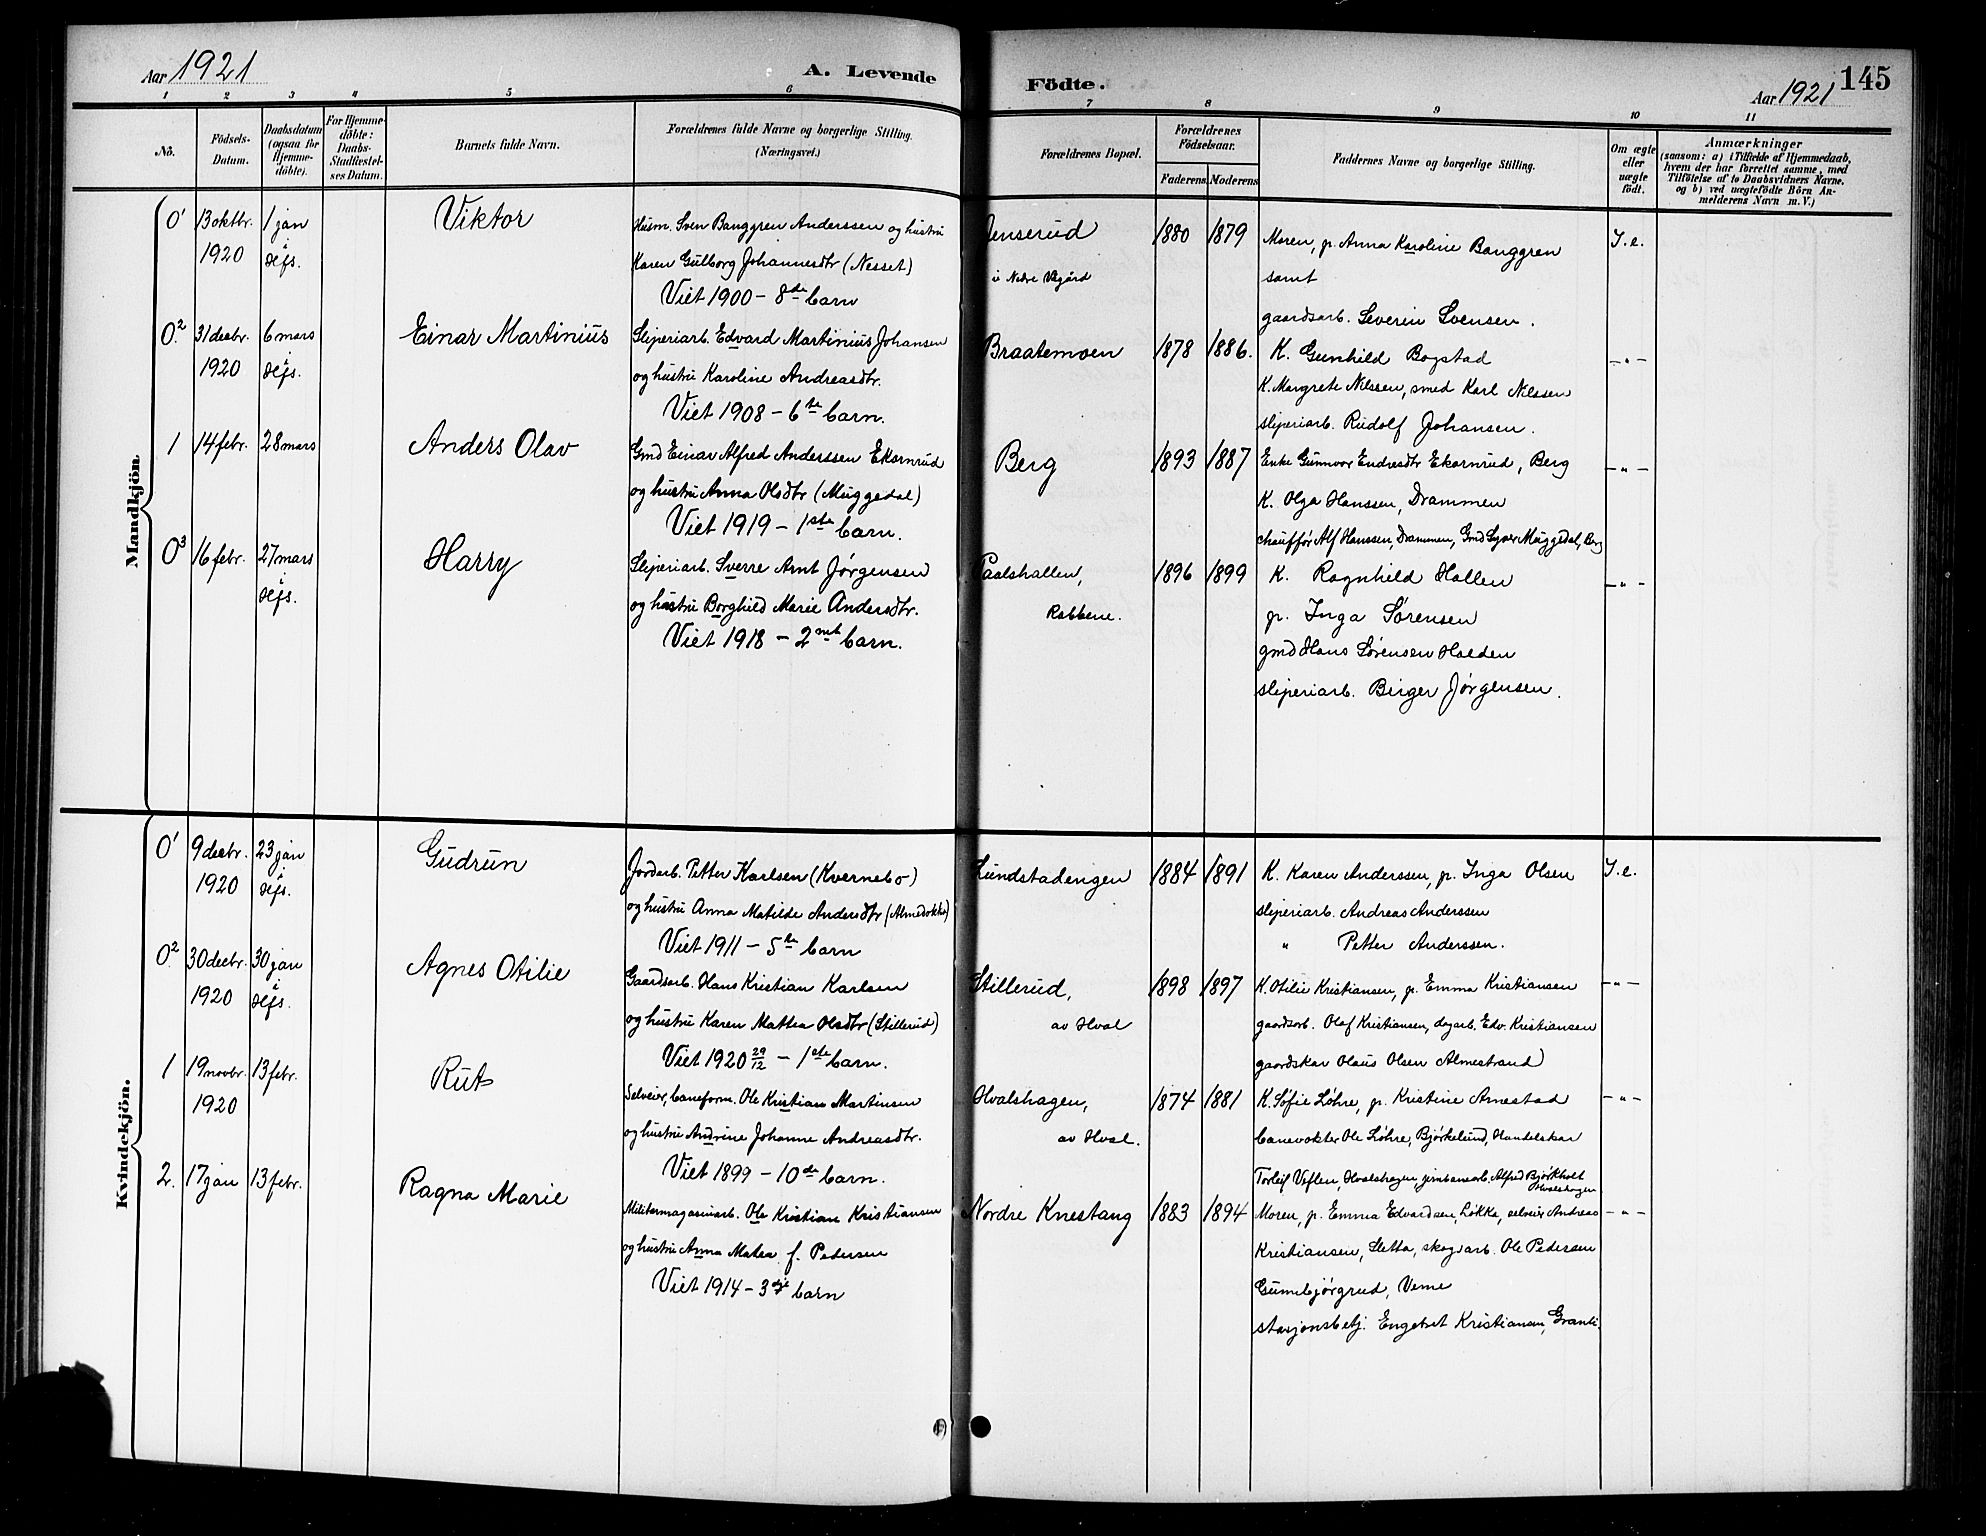 Aar 1921
A. Levende
Födte.
Aar 1921
145
1 2 3 4 5 6 7 8 9 10 11
No.
Födsels-Datum.
Daabsdatum (ogsaa for Hjemme-döbte).
For Hjemme-döbte: Daabs-Stadfæstel-ses Datum.
Barnets fulde Navn.
Forældrenes fulde Navne og borgerlige Stilling.
(Næringsvei.)
Forældrenes Bopæl.
Forældrenes Födselsaar.
Faderens. Moderens.
Faddernes Navne og borgerlige Stilling.
Om ægte eller uægte födt.
Anmærkninger
(saasom: a) i Tilfælde af Hjemmedaab,
hvem der har forrettet samme, med
Tilföielse af to Daabsvidners Navne,
og b) ved uægtefödte Börn An-
melderens Navn m. V.)
Mandkjön
0¹ 13 oktbr. 1 jan Viktor Husm. Sven Banggren Anderssen og hustru Jenserud 1880 1879 Moren, p. Anna Karoline Banggren I.e.
1920 dejs. Karen Gulborg Johannesdtr (Nesset) i Nedre samt
Viet 1900 – 8de barn gaardsarb. Severin Svensen.
0.² 31 decbr. 6 mars Einar Martinius Sliperiarb. Edvard Martinius Johansen Braatemoen 1878 1886. K. Gunhild Bogstad – " –
1920 dejs. og hustru Karoline Andreasdtr. K. Margrete Nilssen, smed Karl Nilssen
Viet 1908 – 6te barn. sliperiarb. Rudolf Johansen.
1 14 febr. 28 mars Anders Olav Gmd Einar Alfred Anderssen Ekornrud Berg 1893 1887 Enke Gunnvor Endresdtr Ekornrud, Berg – " –
og hustru Anna Olsdtr (Muggedal) K. Olga Hanssen, Drammen
Viet 1919 – 1ste barn. chaufför Alf Hanssen, Drammen, Gmd Syver Muggedal, Berg
0³ 16 febr. 27 mars Harry Sliperiarb. Sverre Arnt Jørgensen Paalshallen, 1896 1899 K. Ragnhild Hallen – " –
i dejs. og hustru Borghild Marie Andersdtr. Rabbene. p. Inga Sørensen
Viet 1918 – 2net barn. gmd Hans Sørensen Halden
sliperiarb. Birger Jørgensen.
Kvindekjön.
0¹ 9 decbr. 23 jan Gudrun Jordarb. Petter Karlsen (Kvernebo) Lundstadengen 1884 1891 K. Karen Anderssen, p. Inga Olsen I.e.
1920 i dejs. og hustru Anna Matilde Andersdtr sliperiarb. Andreas Anderssen
Viet 1911 – 5te barn " Petter Anderssen.
0.² 30 decbr. 30 jan Agnes Otilie Gaardsarb. Hans Kristian Karlsen Stillerud, 1898 1897 K. Otilie Kristiansen, p. Emma Kristiansen – " –
1920 i dejs. og hustru Karen Mathea Olsdtr (Stillerud) av Hval gaardsarb. Olaf Kristiansen, dagarb. Edv. Kristiansen
Viet 1920 29/12 – 1ste barn. gaardskar Olaus Olsen Almestrand
1 19 novbr. 13 febr. Rut Selveier, baneform. Ole Kristian Martinsen Hvalshagen, 1874 1881 K. Sofie Løhre, p. Kristine Arnestad – " –
1920 og hustru Andrine Johanne Andreasdtr. av Hval. banevokter Ole Løhre, Bjørkelund, Handelskar
Viet 1899 – 10de barn. Torleif Veflen, Hvalshagen, jernbanearb. Alfred Bjørkholt Hvalshagen
2. 17 jan 13 febr. Ragna Marie Militærmagasinarb. Ole Kristian Kristiansen Nordre Knestang 1883 1894 Moren, p. Emma Edvardsen, Løkka, selveier Andreas – " –
og hustru Anna Matea f. Pedersen Kristiansen, Sletta, skogsarb. Ole Pedersen
Viet 1914 – 3dje barn Gunnbjørgrud, Veme
stasjonsbetj. Engebret Kristiansen, Granli.